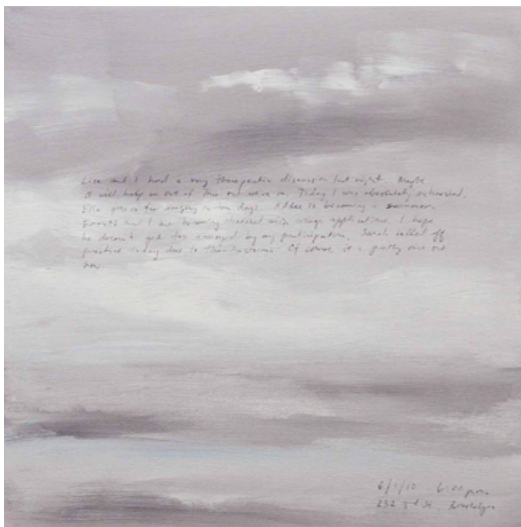 Lisa and I had a very therapeutic discussion last night. Maybe
it will help us out of the rut we're in. Today I was absolutely exhausted.
Ella goes in for surgery in two days. is becoming a swimmer.
and I are becoming with college applications. I hope
he doesn't get too annoyed by my participation. called off
practice today due to thunderstorms. Of course it's pretty nice out
now.
6/1/10 6:00pm
232 3rd St. Brooklyn